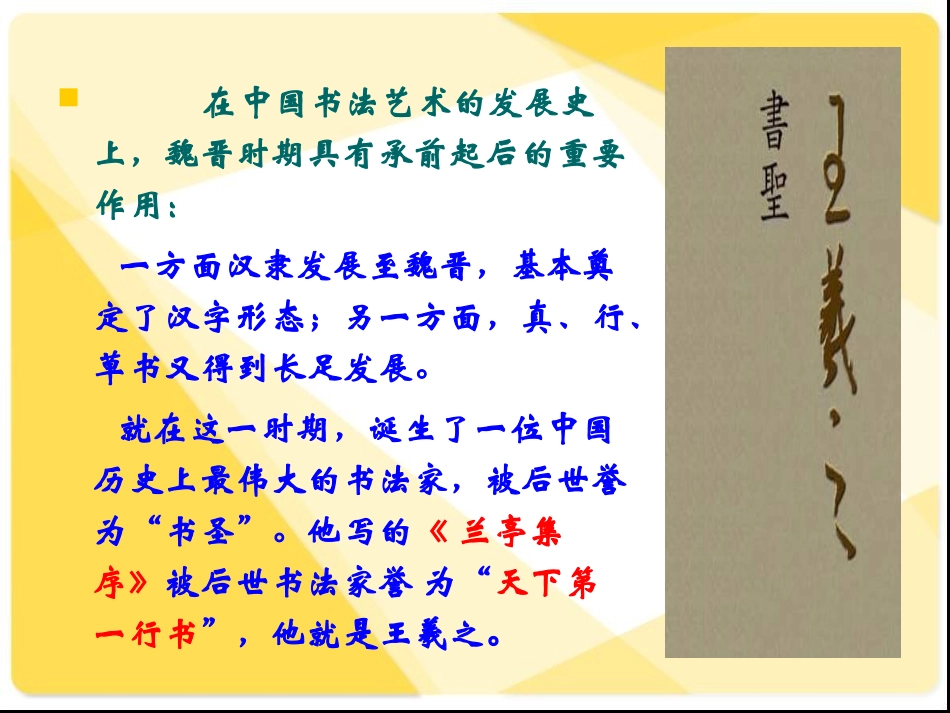 在中国书法艺术的发展史
上，魏晋时期具有承前起后的重要
作用：
一方面汉隶发展至魏晋，基本奠
定了汉字形态；另一方面，真、行、
草书又得到长足发展。
就在这一时期，诞生了一位中国
历史上最伟大的书法家，被后世誉
为“书圣”。他写的《 兰亭集
序》被后世书法家誉 为“天下第
一行书”，他就是王羲之。
王羲之
書聖